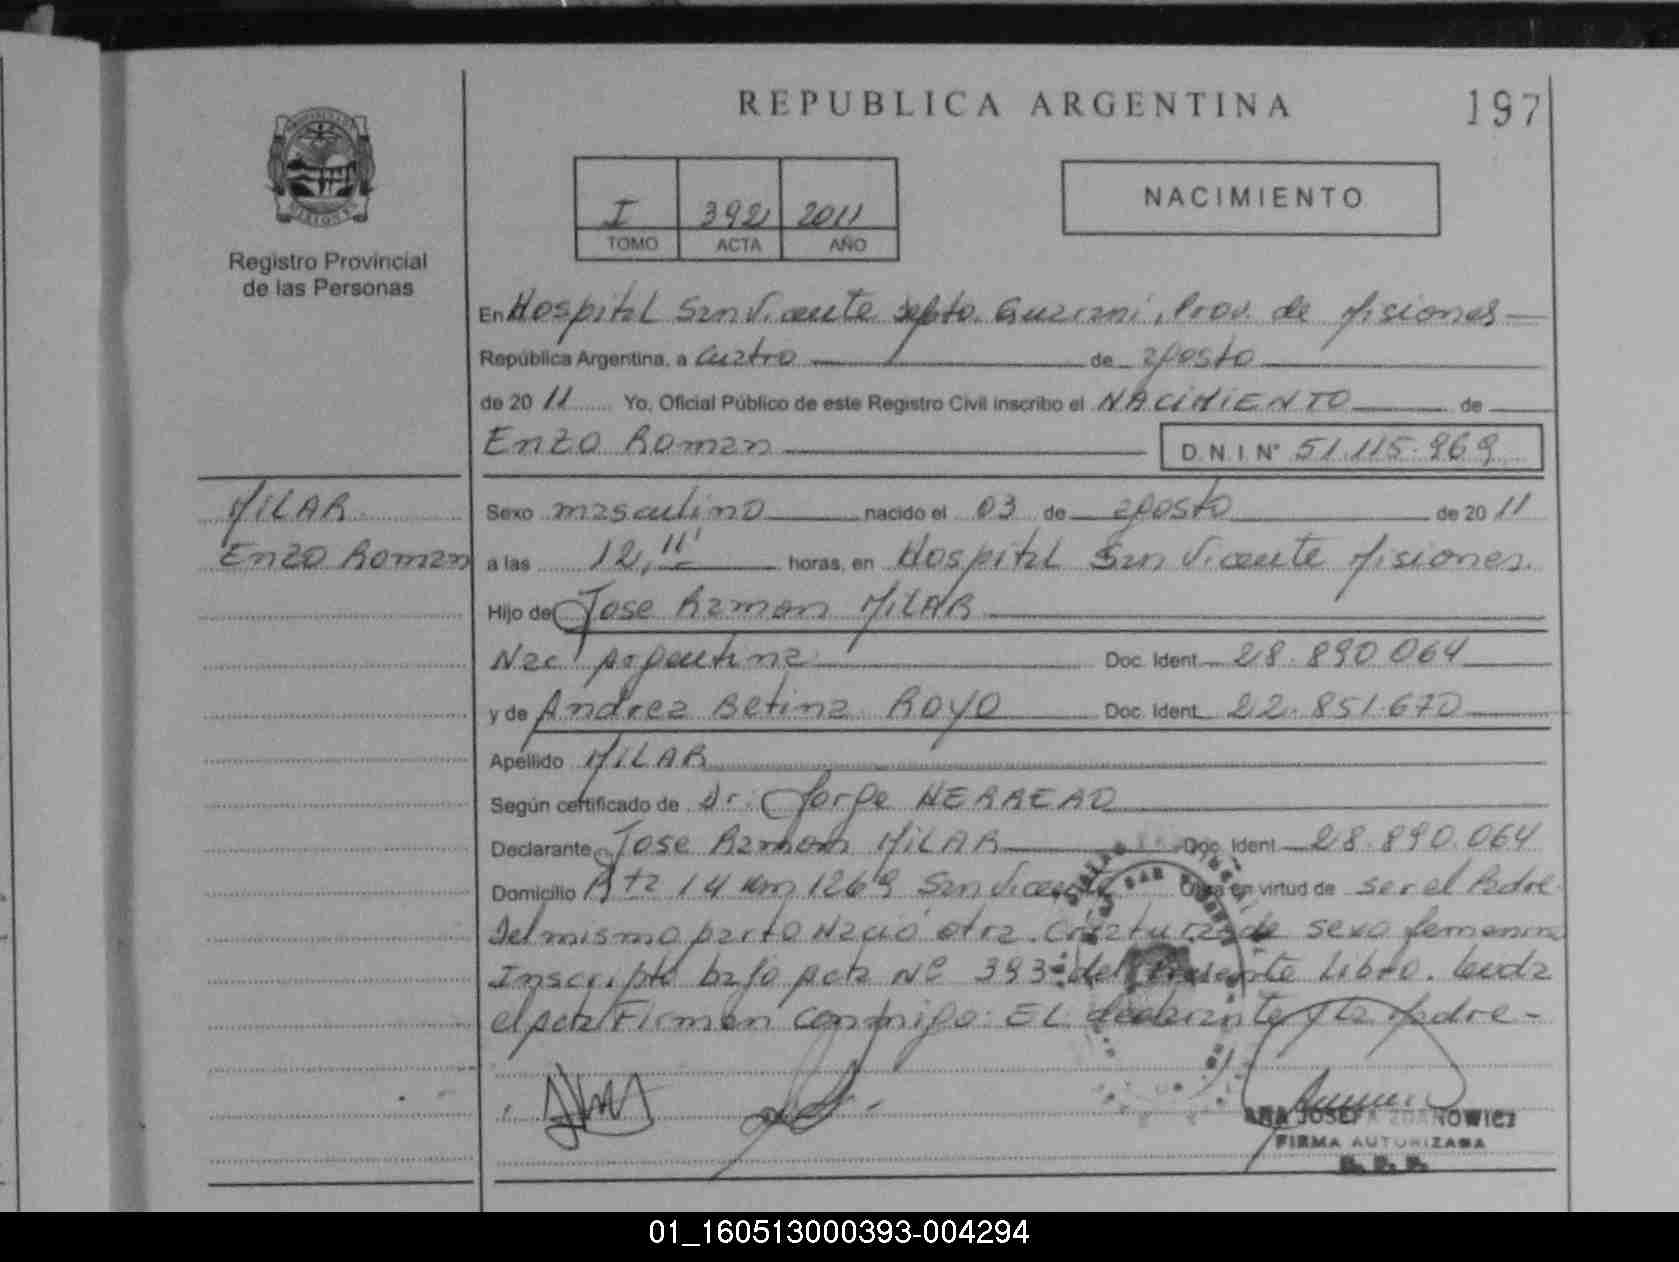 REPUBLICA ARGENTINA
197
Registro Provincial
de las Personas
I 392 2011
TOMO ACTA AÑO
NACIMIENTO
En Hospital San Vicente Depto. Guarani, Prov. de Misiones
República Argentina, a Cuatro de agosto
de 20 11 Yo, Oficial Público de este Registro Civil inscribo el NACIMIENTO de
Enzo Roman D.N.I. N° 51.115.969
MILAR
Enzo Roman
Sexo masculino nacido el 03 de agosto de 20 11
a las 12, 11' horas, en Hospital San Vicente Misiones.
Hijo de Jose Ramon MILAR
Nac Argentina Doc. Ident. 28.890.064
y de Andrea Betina ROYO Doc. Ident. 22.851.670
Apellido MILAR
Según certificado de Dr. Jorge
Declarante Jose Ramon MILAR Doc. Ident. 28.890.064
Domicilio Rta 14 km 1269 San Vicente Obra en virtud de ser el Padre
Del mismo parto Nació otra Criatura de sexo femenino
Inscripta bajo Acta Nº 393 del Presente Libro. Leida
el Acta Firman conmigo: EL declarante y la Madre-
ANA JOSEFA ZDANOWICZ
FIRMA AUTORIZADA
R. P. P.
01_160513000393-004294